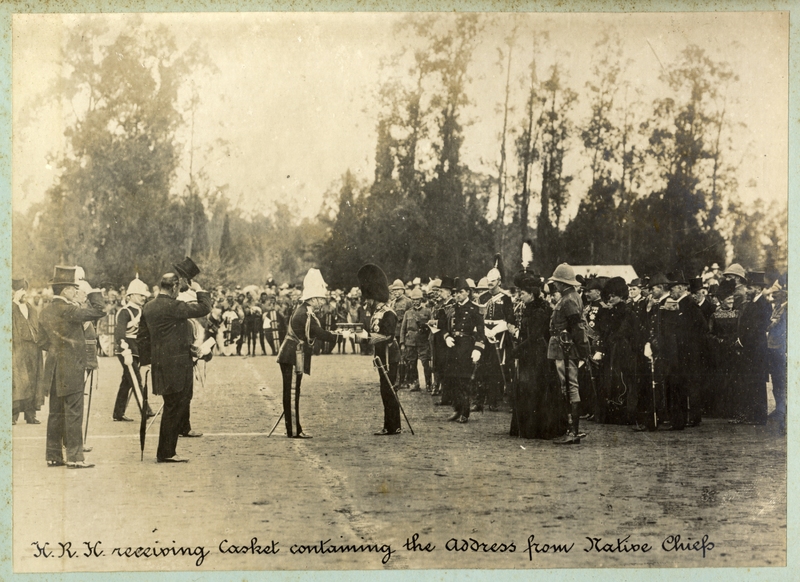 H. R. H. receiving Casket containing the Address from Native Chiefs